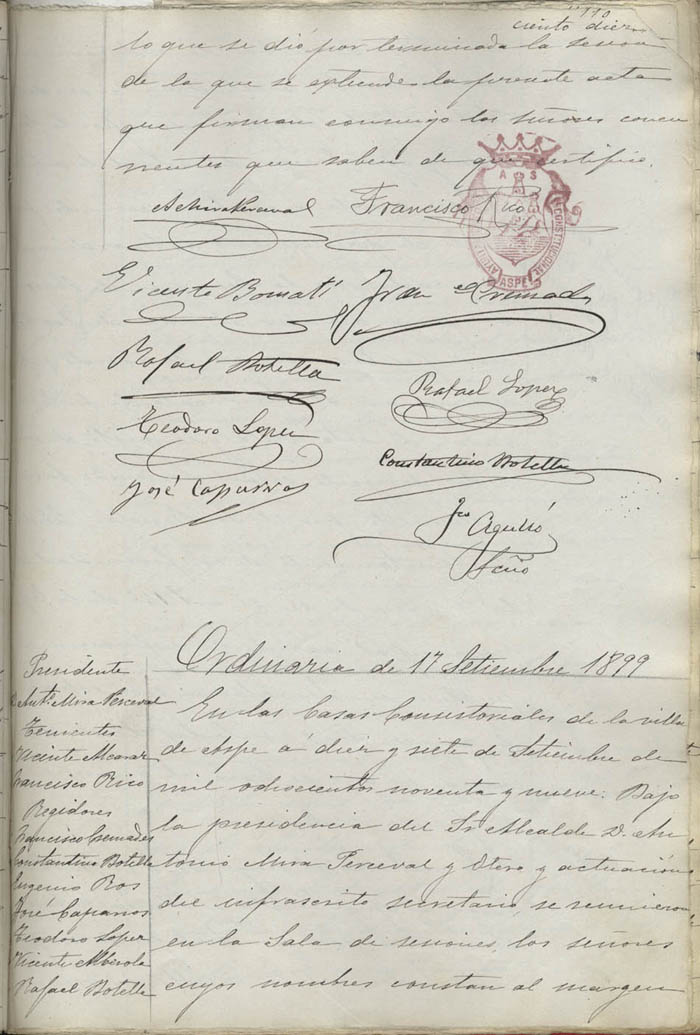 110
ciento diez
lo que se dió por terminada la sesion
de la que se estiende la presente acta
que firman conmigo los señores concu
rrentes que saben de que certifico.
A Mira Perceval
Francisco Rico
A S
AYUNT CONSTITUCIONAL
ASPE
Vicente Bomatí
Fran Cremades
Rafael Botella
Rafael Lopez
Teodoro Lopez
Constantino Botella
José Caparros
Fco Agulló
Srio
Ordinaria de 17 Setiembre 1899
Presidente
D Antº Mira Perceval
Tenientes
Vicente Alcaraz
Francisco Rico
Regidores
Francisco Cremades
Constantino Botella
Eugenio Ros
José Caparros
Teodoro Lopez
Vicente Alberola
Rafael Botella
En las Casas Consistoriales de la villa
de Aspe á diez y siete de Setiembre de
mil ochocientos noventa y nueve: Bajo
la presidencia del Sr Alcalde D. An
tonio Mira Perceval y Otero y actuacion
del infrascrito secretario, se reunieron
en la Sala de sesiones, los señores
cuyos nombres constan al margen